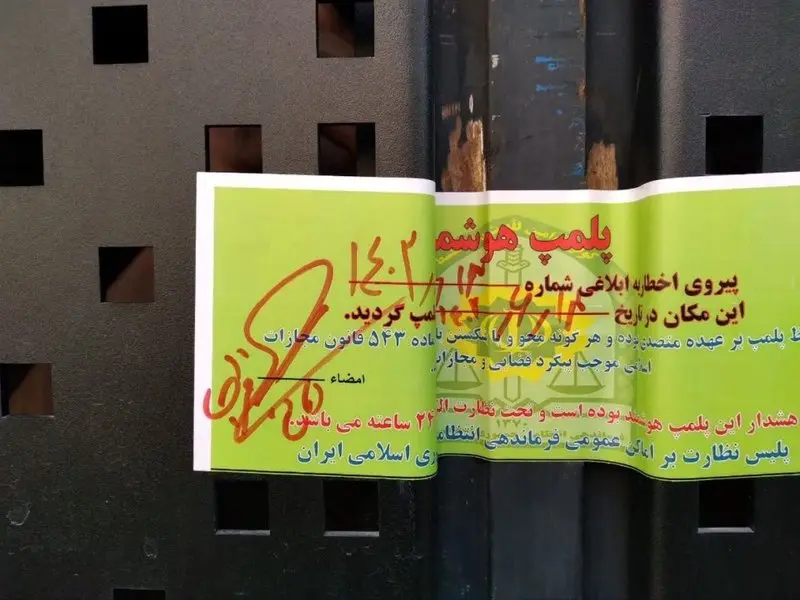 پلمپ هوشم
پیروی اخطاریه ابلاغی شماره
این مکان در تاریخ مپ گردید.
ظ پلمپ بر عهده متصدی بوده و هر گونه محو و یا شکستن ماده ۵۴۳ قانون مجازات
اسلامی موجب پیگرد قضایی و مجازات
امضاء
هشدار این پلمپ هوشمند بوده است و تحت نظارت ۲۴ ساعته می باشد.
پلیس نظارت بر اماکن عمومی فرماندهی انتظامی ری اسلامی ایران
۱۳۷۰